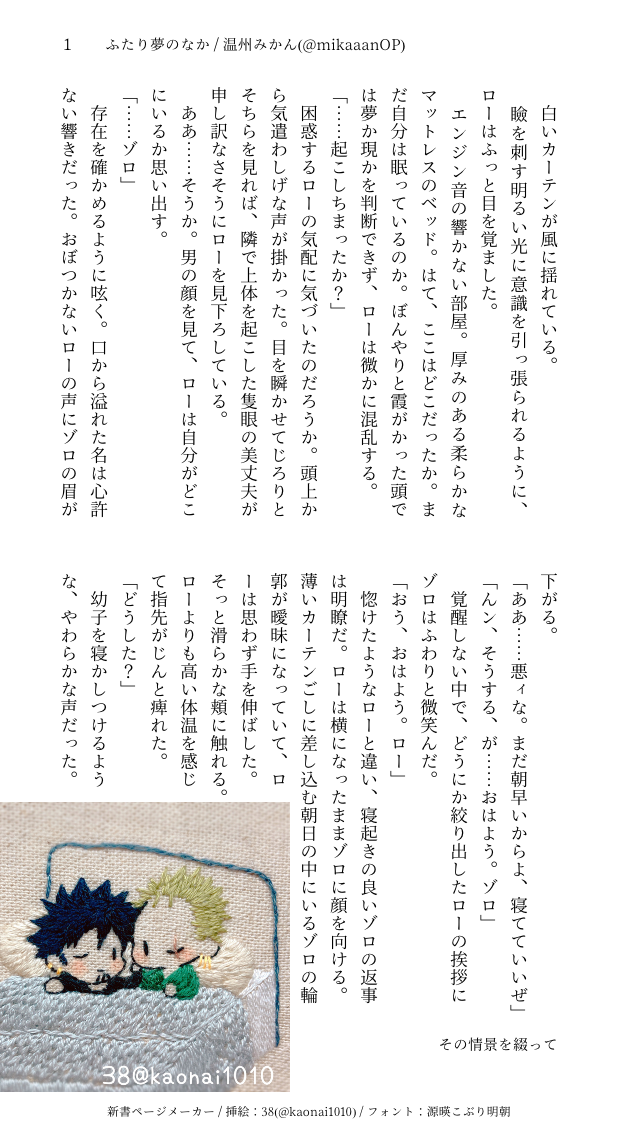 1 ふたり夢のなか / 温州みかん(@mikaaanOP)
白いカーテンが風に揺れている。
瞼を刺す明るい光に意識を引っ張られるように、
ローはふっと目を覚ました。
エンジン音の響かない部屋。厚みのある柔らかな
マットレスのベッド。はて、ここはどこだったか。ま
だ自分は眠っているのか。ぼんやりと霞がかった頭で
は夢か現かを判断できず、ローは微かに混乱する。
「……起こしちまったか？」
困惑するローの気配に気づいたのだろうか。頭上か
ら気遣わしげな声が掛かった。目を瞬かせてじろりと
そちらを見れば、隣で上体を起こした隻眼の美丈夫が
申し訳なさそうにローを見下ろしている。
ああ……そうか。男の顔を見て、ローは自分がどこ
にいるか思い出す。
「……ゾロ」
存在を確かめるように呟く。口から溢れた名は心許
ない響きだった。おぼつかないローの声にゾロの眉が
下がる。
「ああ……悪ィな。まだ朝早いからよ、寝てていいぜ」
「んン、そうする、が……おはよう。ゾロ」
覚醒しない中で、どうにか絞り出したローの挨拶に
ゾロはふわりと微笑んだ。
「おう、おはよう。ロー」
惚けたようなローと違い、寝起きの良いゾロの返事
は明瞭だ。ローは横になったままゾロに顔を向ける。
薄いカーテンごしに差し込む朝日の中にいるゾロの輪
郭が曖昧になっていて、ロ
ーは思わず手を伸ばした。
そっと滑らかな頬に触れる。
ローよりも高い体温を感じ
て指先がじんと痺れた。
「どうした？」
幼子を寝かしつけるよう
な、やわらかな声だった。
その情景を綴って
38@kaonai1010
新書ページメーカー / 挿絵：38(@kaonai1010) / フォント：源暎こぶり明朝